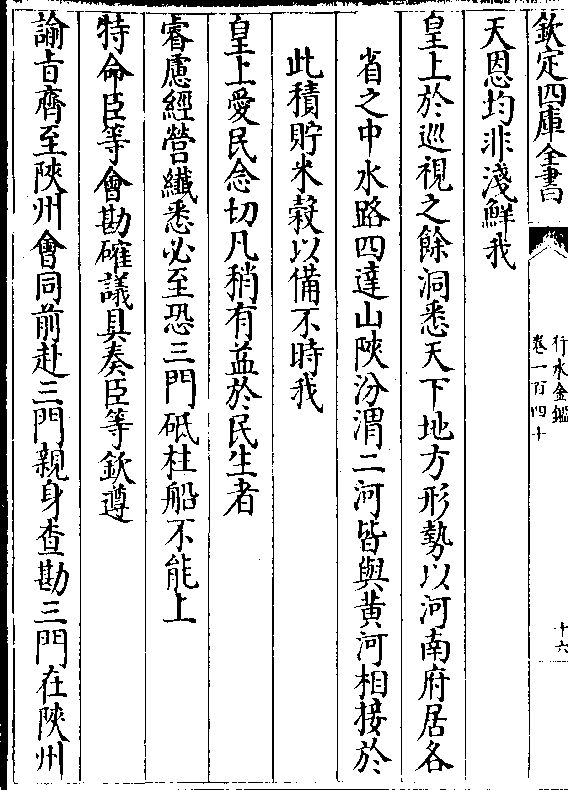 欽定四庫全書
行水金鑑
卷一百四十
十六
天恩均非淺鮮我
皇上於巡視之餘洞悉天下地方形勢以河南府居各
省之中水路四達山陝汾渭二河皆與黃河相接於
此積貯米穀以備不時我
皇上愛民念切凡稍有益於民生者
睿慮經營纖悉必至恐三門砥柱船不能上
特命臣等會勘確議具奏臣等欽遵
諭旨齊至陝州會同前赴三門親身查勘三門在陝州